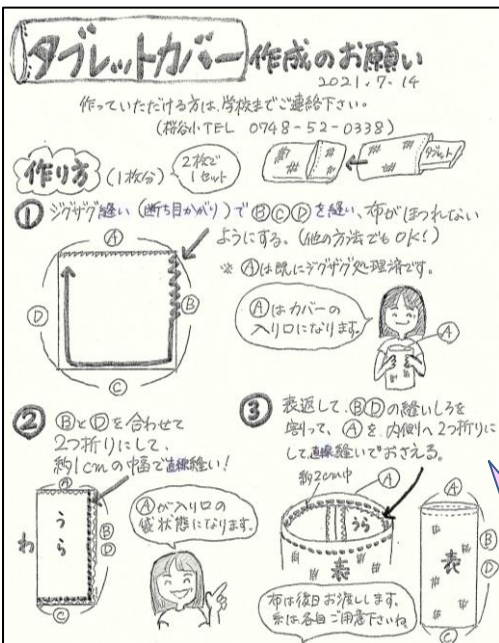 タブレットカバー作成のお願い
2021.7.14
作っていただける方は、学校までご連絡下さい。
(桜谷小TEL 0748-52-0338)
作り方 (1枚分)
2枚で
1セット
タブレット
① ジグザグ縫い(断ち目かがり)でⒷⒸⒹを縫い、布がほつれない
ようにする。(他の方法でもOK!)
※ Ⓐは既にジグザグ処理済です。
Ⓐ
Ⓓ
Ⓑ
Ⓒ
Ⓐはカバーの
入り口になります。
Ⓐ
② ⒷとⒹを合わせて
2つ折りにして、
約1cmの幅で直線縫い!
Ⓐ
わ
うら
Ⓑ
Ⓓ
Ⓒ
Ⓐが入り口の
袋状態になります。
③ 表返して、ⒷⒹの縫いしろを
割って、Ⓐを、内側へ2つ折りに
して直線縫いでおさえる。
約2cm巾
Ⓐ
うら
表
Ⓐ
表
Ⓑ
Ⓓ
Ⓒ
布は後日お渡しします。
糸は各自ご用意下さいね